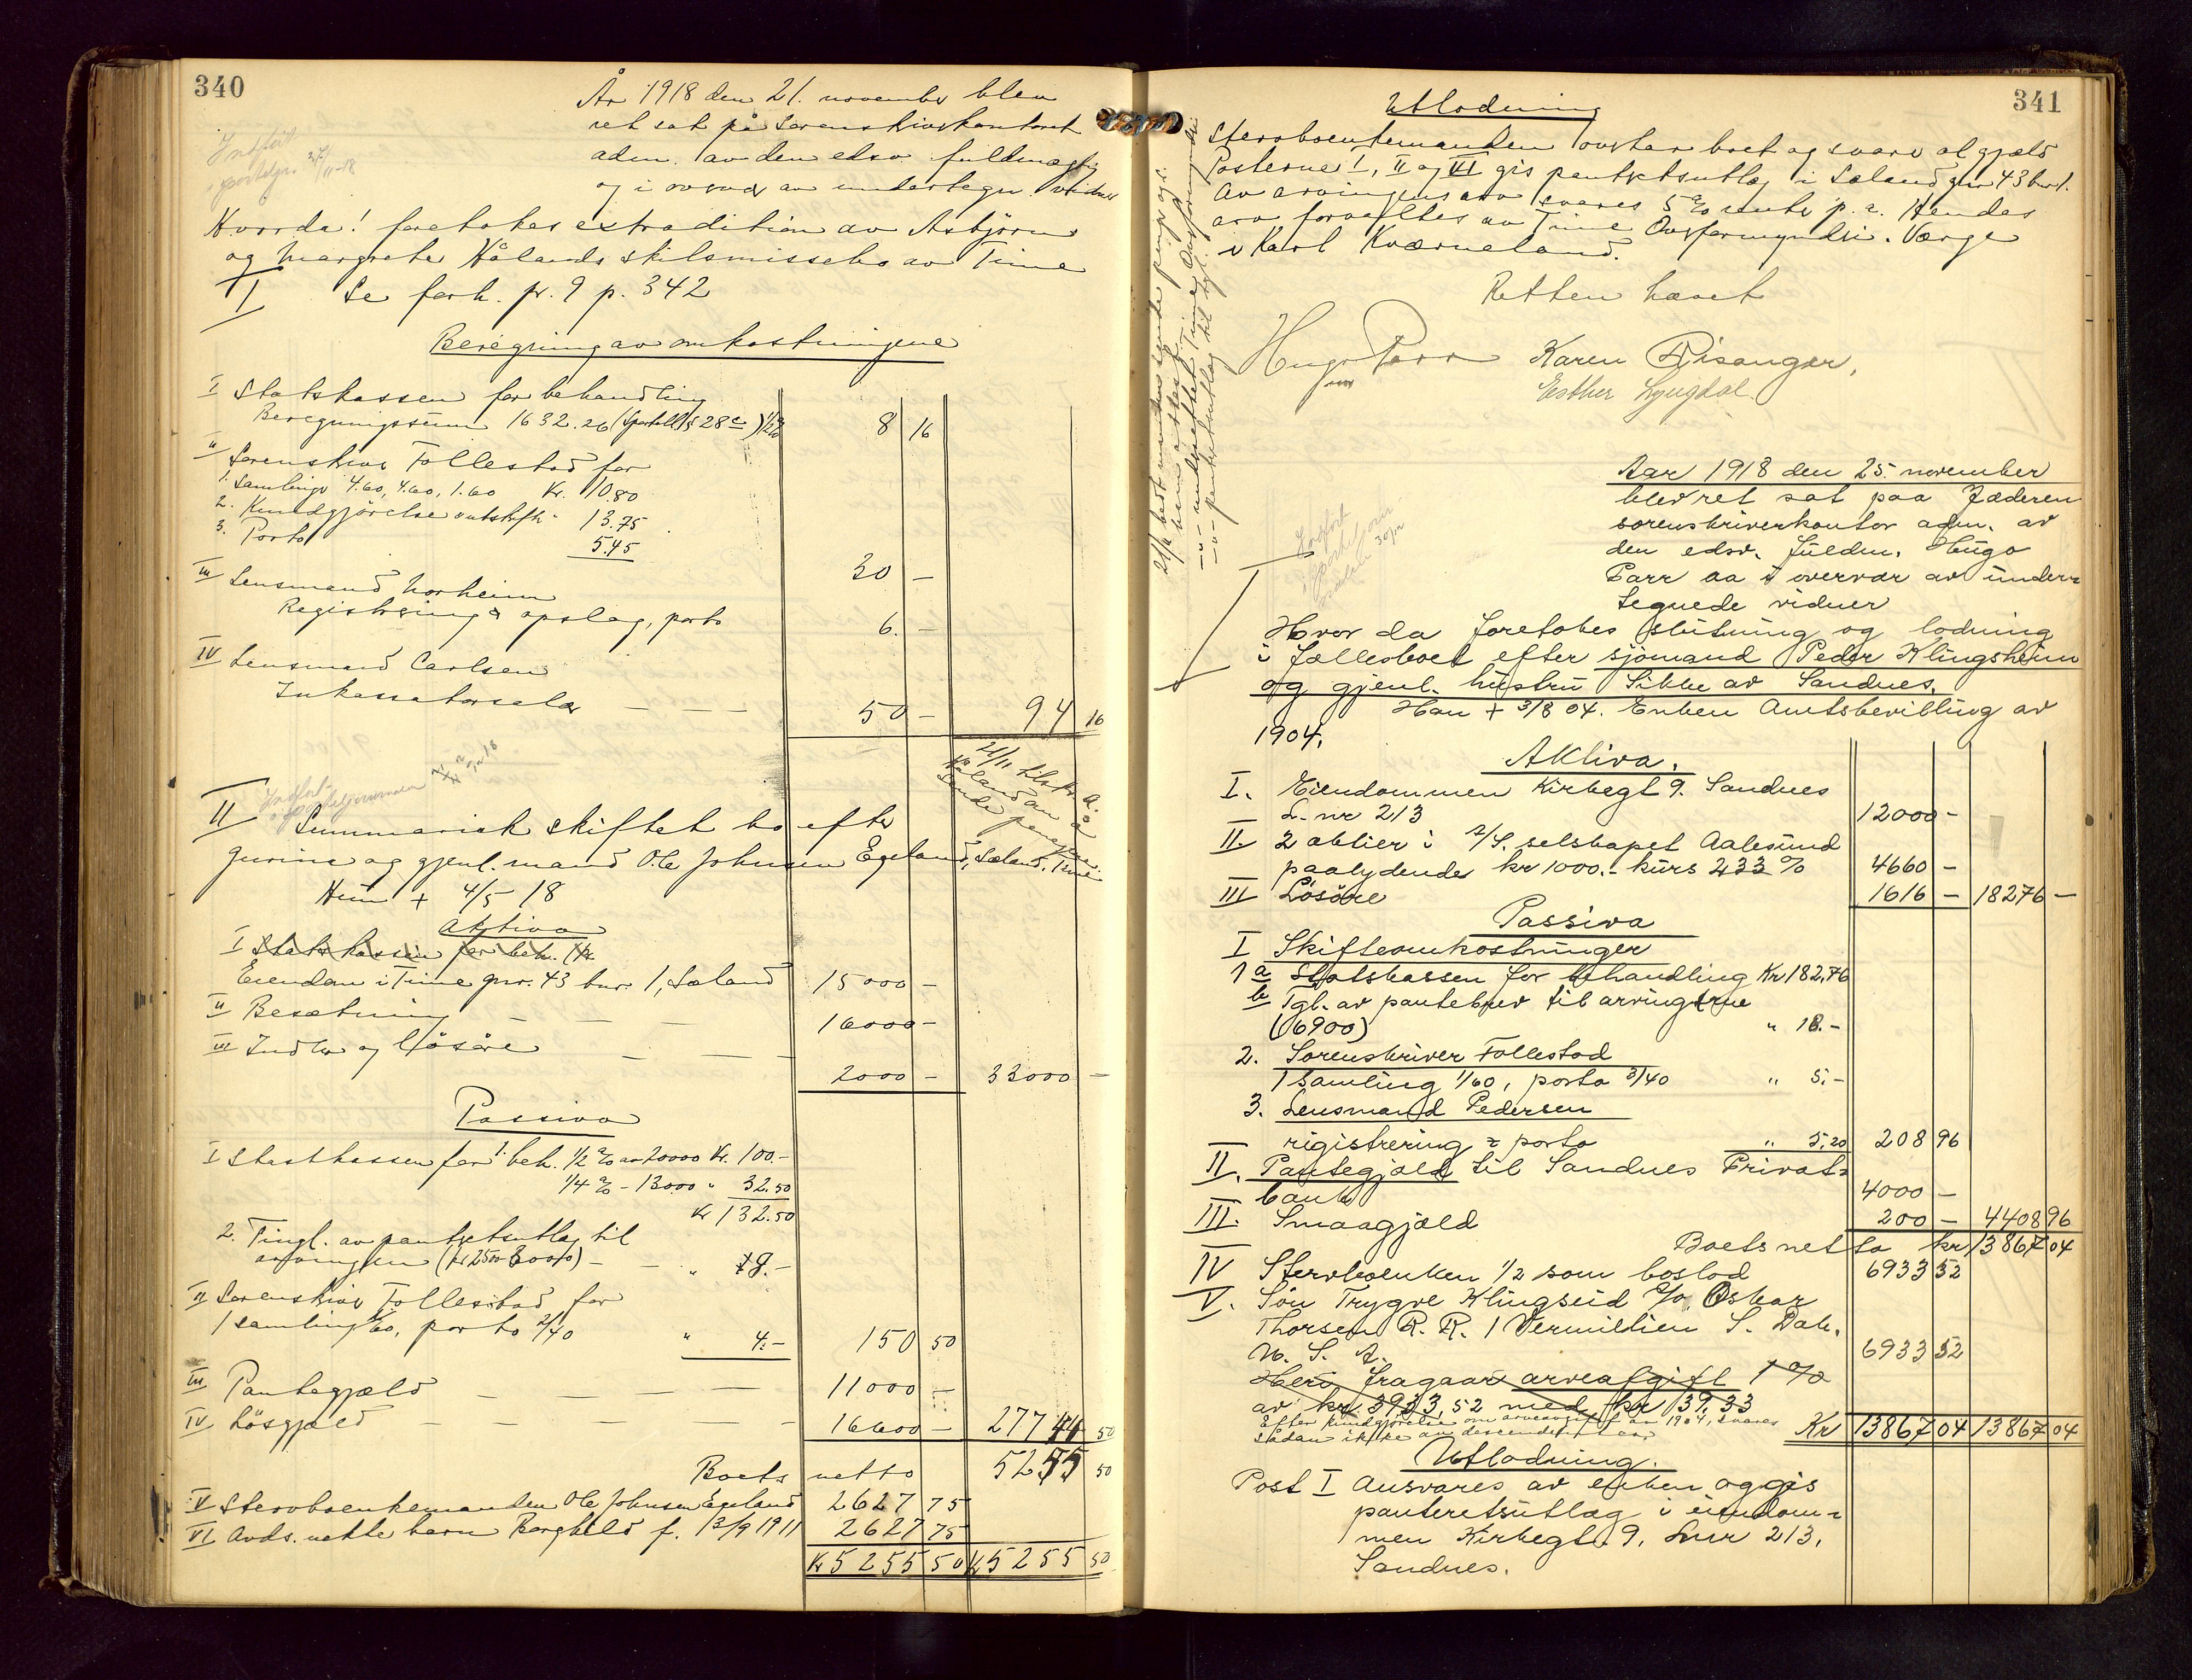 340
År 1918 den 21. november blev
ret sat på Sorenskriverkontoret
adm. av den edsv. fuldmægtig
og i overvær av undertegn. vidner
Indført
i sportelgr. 27/11-18
Hvorda! foretokes extradition av Asbjørn
og Margrete Hålands skilsmissebo av Time
I Se forh. pr. 9 p. 342
Beregning av omkostningene
I Statskassen for behandling
Beregningssum 1632.26 (Sportell. § 28 c) 1/2% 8 16
II Sorenskriver Follestad for
1. Samlinger 4.60, 4.60, 1.60 Kr. 10.80
2. Kundgjörelse utskrift " 13.75
3. Porto 5.45
30 —
III Lensmand Norheim
Registrering & opslag, porto 6. —
IV Lensmand Carlsen
Inkassatorsalær — — — 50 — 94 16
21/11 tilskr. A.
Håland om å
sende penger
Indført
i sporteljournalen
II Summarisk skiftet bo efter
Gurine og gjenl. mand Ole Johnsen Egeland, Sæland, Time
Hun + 4/5 18
Aktiva
I Statskassen for beh. (Kr
Eiendom i Time gnr. 43 bnr 1, Sæland 15000 —
II Besætning — — — 16000 —
III Indbo og lösöre — — — 2000 — 33000 —
Passiva
I Statskassen for 1. beh. 1/2 % av 20000 Kr. 100.-
1/4 % - 13000 " 32.50
Kr 132.50
2. Tingl. av panteretsutlæg til
arvingen (kr 2500 3000) — — " 18.-
II Sorenskriver Follestad for
1 samling 1/60, porto 2/40 " 4.- 150 50
III Pantegjæld — — — — 11000 —
IV Lösgjæld — — — — 16600 — 27744 50
Boets netto 5255 50
V Stervboenkemanden Ole Johnsen Egeland 2627 75
VI Avds. ektebarn Borghild f. 13/9 1911 2627 75
Kr 5255 50 Kr 5255 50
341
Utlodning
Stervboenkemanden overtar boet og svarer al gjæld
Posterne I, II og VI gis panteretsutlæg i Sæland gnr 43 bnr 1.
Av arvingens arv svares 5 % rente p. a. Hendes
arv forvaltes av Time Overformynderi. Værge
er Karl Kværneland.
Retten hævet
Hugo Parr Karen Risanger,
Esther Lyngdal.
Aar 1918 den 25. november
blev ret sat paa Jæderen
sorenskriverkontor adm. av
den edsv. fuldm. Hugo
Parr aa i overvær av under=
tegnede vidner
Indført
Hvor da foretokes slutning og lodning
i fællesboet efter sjömand Peder Klingsheim
og gjenl. hustru Sikke av Sandnes.
Han + 3/8 04. Enken Amtsbevilling av
1904.
Aktiva.
I. Eiendommen Kirkegt 9. Sandnes
L. nr 213 12000 -
II. 2 aktier i A/S. selskapet Aalesund
paalydende kr 1000.- kurs 233 % 4660 —
III Lösöre 1616 — 18276 —
Passiva
I Skifteomkostninger
1 a Statskassen for behandling Kr 182,76
b Tgl. av pantebrev til arvingerne
(6900) " 18.-
2. Sorenskriver Follestad
1 Samling 1/60, porto 3/40 " 5.-
3. Lensmand Pedersen
rigistrering & porto " 5,20 208 96
II. Pantegjæld til Sandnes Privat=
bank 4000 —
III. Smaagjæld 200 — 4408 96
Boets netto kr 13867 04
IV Stervboenken 1/2 som boslod 6933 52
V. Sön Trygve Klingseid c/o Oskar
Thorsen R. R. 1 Vermillien S. Dak.
U. S. A. 6933 52
Heri fragaar arveafgift 1 %
av kr. 3933,52 med kr 39,33
Efter kundgjörelse om arveavgift av 1904, svares
sådan ikke av descendent arv
Kr 13867 04 13867 04
Utlodning.
Post I Ansvares av enken og gis
panteretsutlæg i eiendom=
men Kirkegt. 9, Lnr 213,
Sandnes.